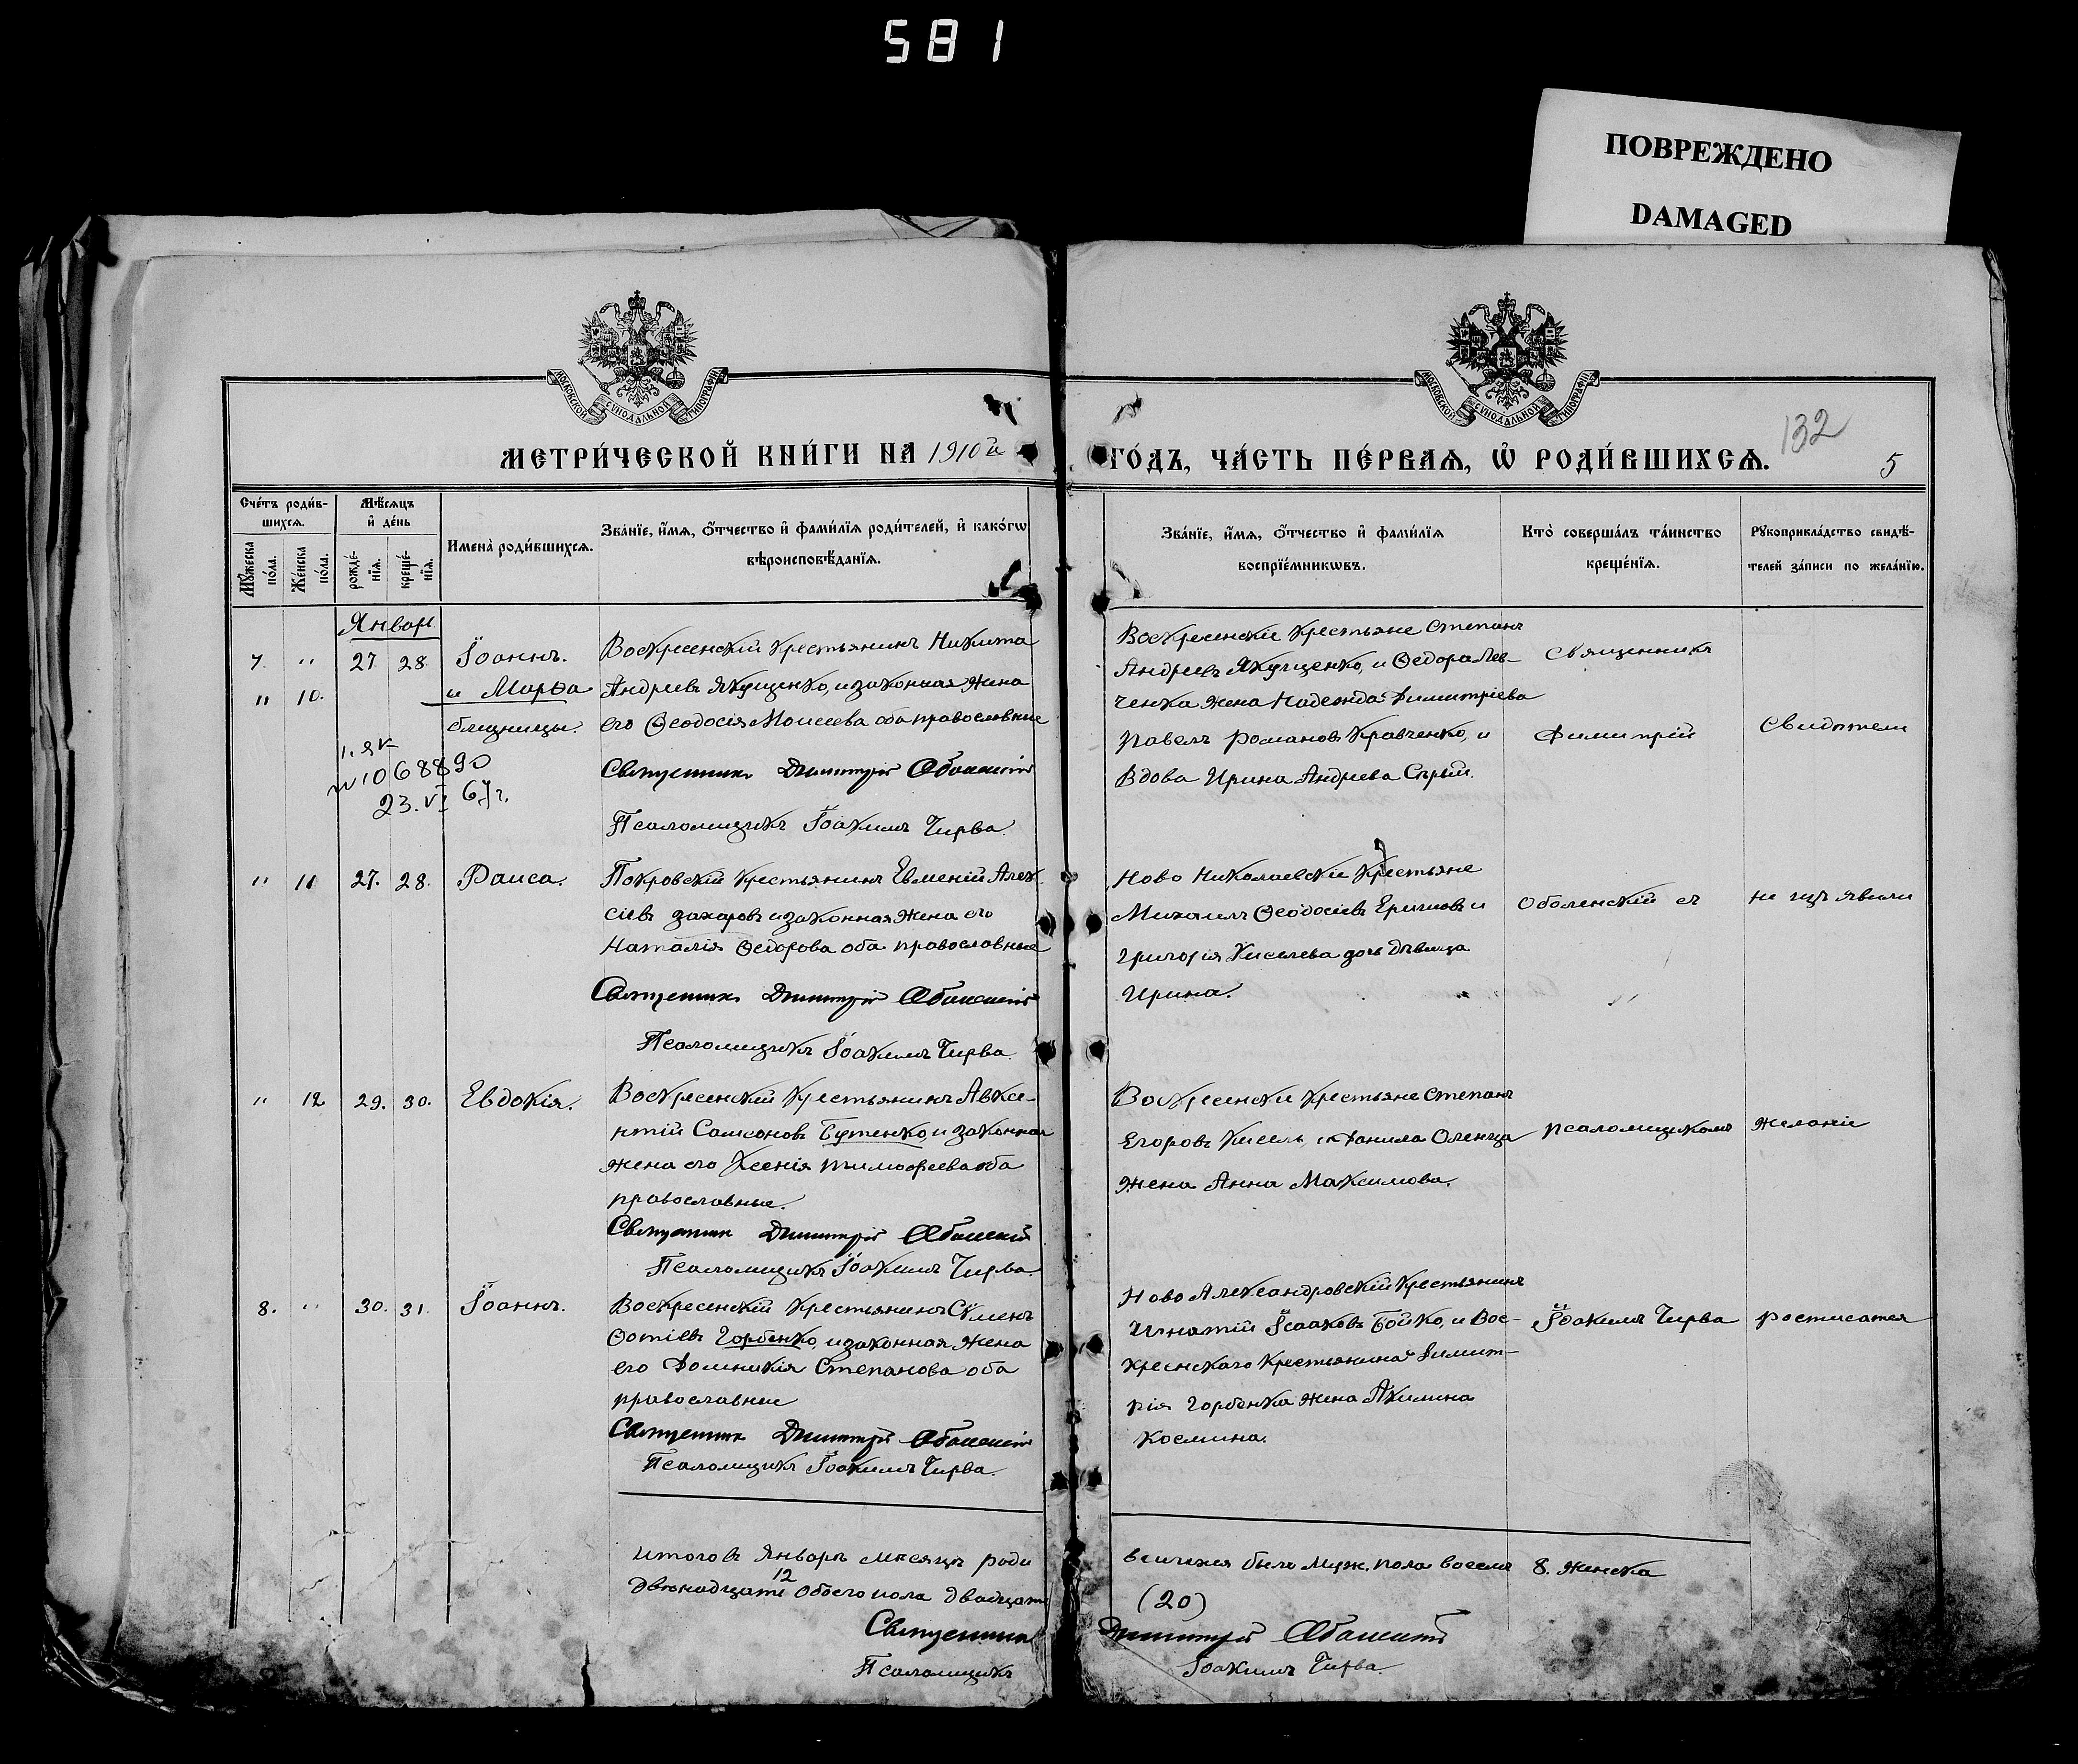 581
ПОВРЕЖДЕНО
DAMAGED
МОСКОВСКОЙ СУНОДАЛЬНОЙ ТИПОГРАФІИ
МОСКОВСКОЙ СУНОДАЛЬНОЙ ТИПОГРАФІИ
132
МЕТРИ́ЧЕСКОЙ КНИ́ГИ НА 1910й
ГО́ДЪ, ЧА́СТЬ ПЕ́РВАѦ, Ѡ҆ РОДИ́ВШИХСѦ.
5
Сче́тъ роди́в-
шихсѧ.
Мꙋ́жеска по́ла.
Же́нска по́ла.
Мѣ́сѧцъ
и҆ де́нь
рожде́-
нїѧ.
креще́-
нїѧ.
Имена̀ роди́вшихсѧ.
Зва́нїе, и҆́мѧ, ѻ҆́тчество и҆ фами́лїѧ роди́телей, и҆ како́гѡ
вѣроисповѣ́данїѧ.
Зва́нїе, и҆́мѧ, ѻ҆́тчество и҆ фами́лїѧ
воспрїе́мникѡвъ.
Кто̀ соверша́лъ та́инство
креще́нїѧ.
Рꙋкоприкла́дство свидѣ́-
телей за́писи по жела́нїю.
Январь
7. " 27. 28. Іоаннъ.
" 10. и Марѳа
близницы.
Воскресенскій крестьянинъ Никита
Андреевъ Якущенко, и законная жена
его Ѳеодосія Моисеева оба православные
Священникъ Димитрій Оболенскій
Псаломщикъ Іоакимъ Чирва.
1. ЯК
№ 1068890
23. VI 67г.
Воскресенскіе крестьяне Степанъ
Андреевъ Якущенко, и Ѳедора Лев-
ченка жена Надежда Димитріева
Павелъ Романовъ Кравченко, и
Вдова Ирина Андреева Сѣрый.
Священникъ
Димитрій
Свидѣтели
" 11 27. 28. Раиса.
Покровскій крестьянинъ Евменій Алек
сіевъ Захаровъ и законная жена его
Наталія Ѳедорова оба православные
Священникъ Димитрій Оболенскій
Псаломщикъ Іоакимъ Чирва.
Ново Николаевскіе Крестьяне
Михаилъ Ѳеодосіевъ и
Григорія Киселева дочь дѣвица
Ирина.
Оболенскій съ
не изъявили
" 12 29. 30. Евдокія.
Воскресенскій Крестьянинъ Авксе-
нтій Самсоновъ Бутенко и законная
жена его Ксенія Тимоѳеева оба
православные.
Священникъ Димитрій Оболенскій
Псаломщикъ Іоакимъ Чирва.
Воскресенскіе Крестьяне Степанъ
Егоровъ Кисель, и Данила Оленца
жена Анна Максимова.
псаломщикомъ
желаніе
8. " 30. 31. Іоаннъ.
Воскресенскій Крестьянинъ
Ѳотіевъ Горбенко, и законная жена
его Домникія Степанова оба
православные
Священникъ Димитрій Оболенскій
Псаломщикъ Іоакимъ Чирва.
Ново Александровскій Крестьянинъ
Игнатій Ісааковъ Бойко, и Вос-
кресенскаго Крестьянина Димит-
рія Горбенка жена Акилина
Косьмина.
Іоакимъ Чирва
росписатся
Итого въ Январѣ мѣсяцѣ роди
вшихся было муж. пола восемь 8. женска
двѣнадцать 12 обоего пола двадцать
(20)
Священникъ Димитрій Оболенскій
Псаломщикъ Іоакимъ Чирва.